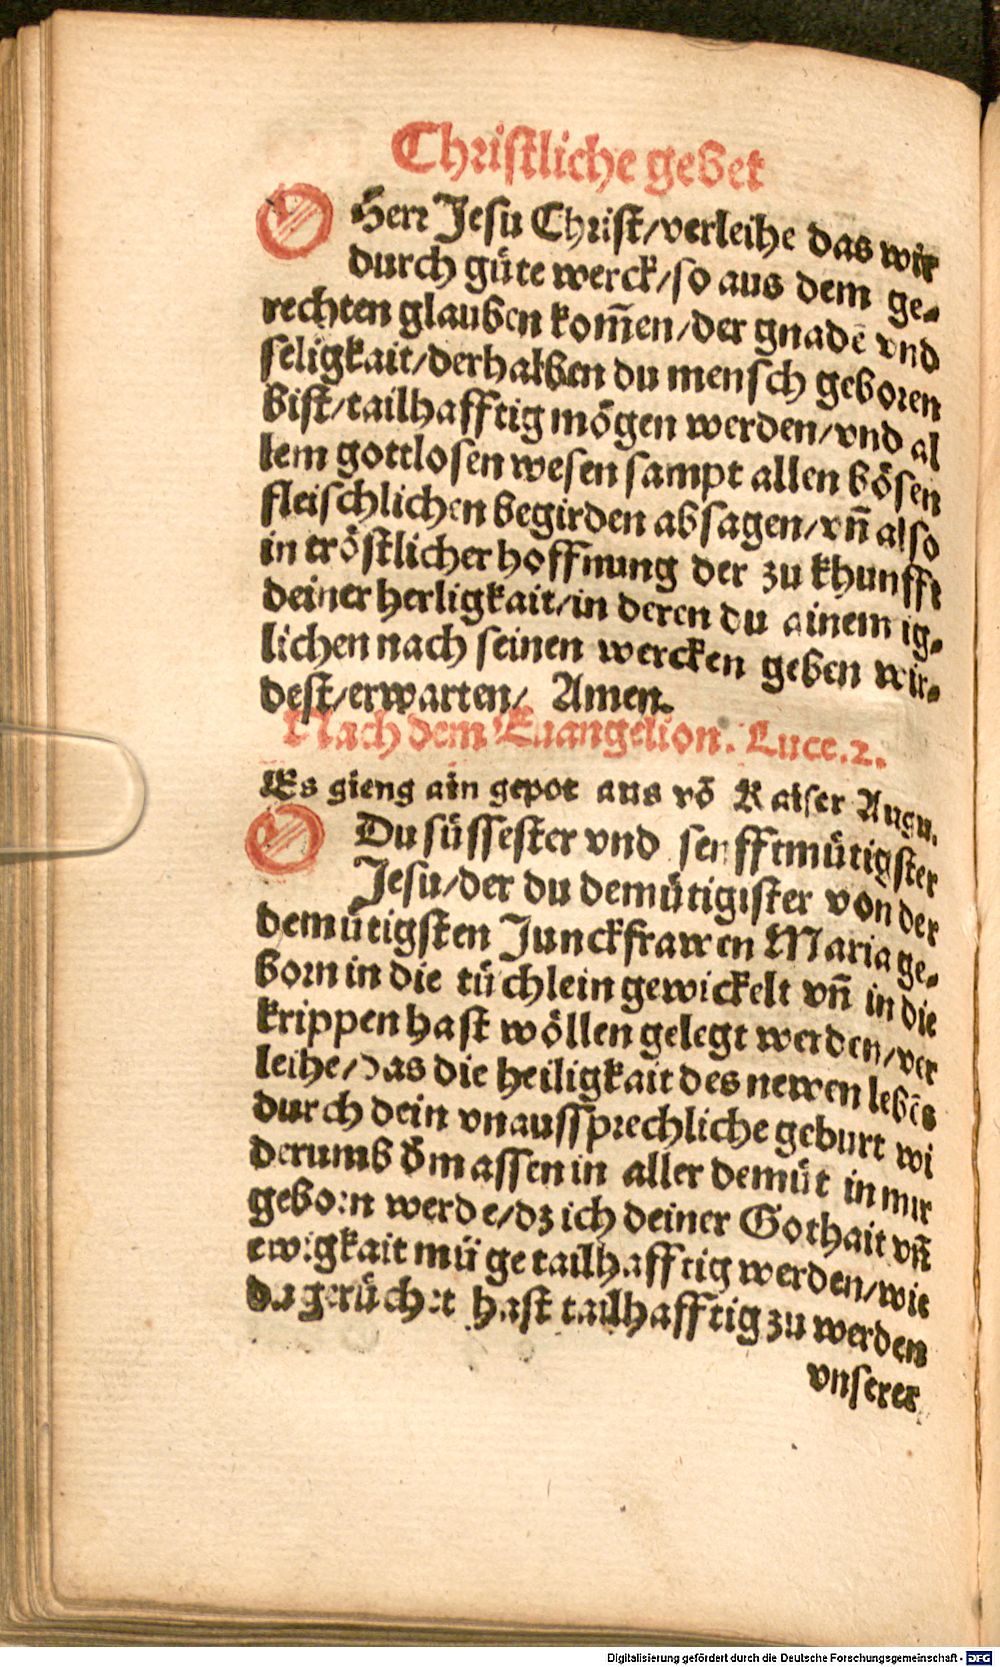 Christliche gebet
O Herr Jesu Christ/verleihe das wir
durch güte werck/so aus dem ge-
rechten glauben kom̃en/der gnadē vnd
seligkait/derhalben du mensch geboren
bist/tailhafftig mögen werden/vnd al
lem gottlosen wesen sampt allen bösen
fleischlichen begirden absagen/vñ also
in tröstlicher hoffnung der zu khunfft
deiner herligkait/in deren du ainem ig-
lichen nach seinen wercken geben wir-
dest/erwarten/ Amen.
Nach dem Euangelion. Luce.2.
Es gieng ain gepot aus võ Kaiser Augu.
O Du süssester vnd senfftmütigster
Jesu/der du demütigister von der
demütigsten Junckfrawen Maria ge-
born in die tüchlein gewickelt vñ in die
krippen hast wöllen gelegt werden/ver
leihe/das die heiligkait des newen lebēs
durch dein vnaussprechliche geburt wi
derumb d̄massen in aller demüt in mir
geborn werde/dz ich deiner Gothait vñ
ewigkait müge tailhafftig werden/wie
du gerüchet hast tailhafftig zu werden
vnserer
Digitalisierung gefördert durch die Deutsche Forschungsgemeinschaft - DFG